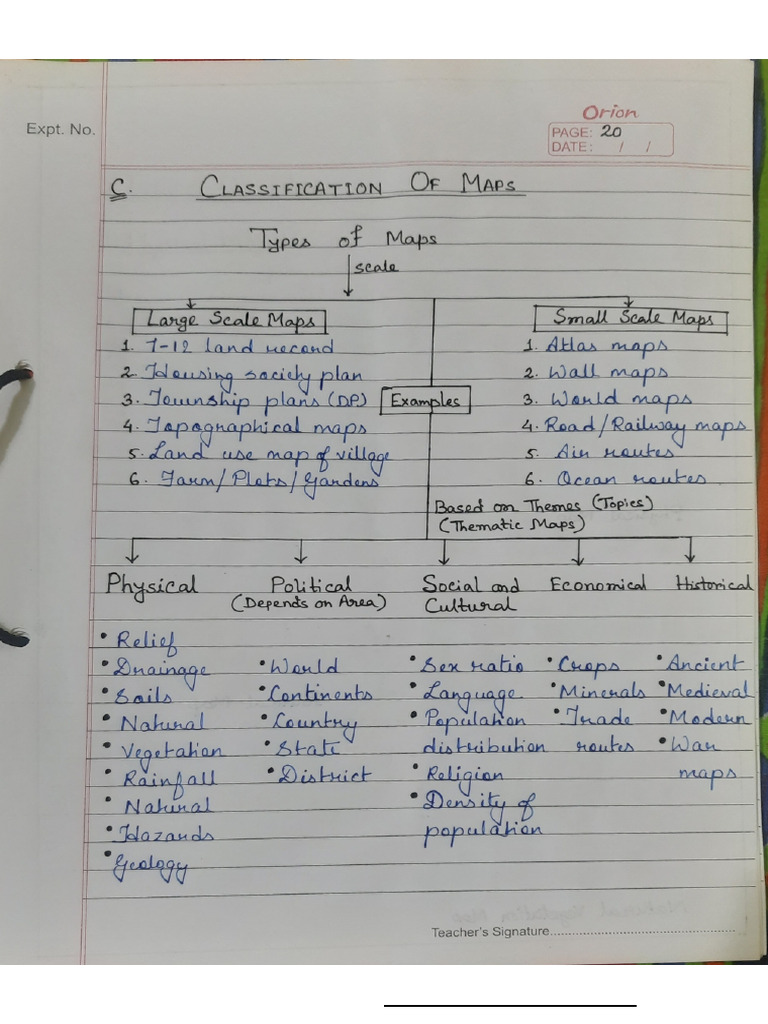 Orion
Expt. No.
PAGE: 20
DATE: / /
C. CLASSIFICATION OF MAPS
Types of Maps
scale
Large Scale Maps
1. 7-12 land record
2. Housing society plan
3. Township plans (DP)
4. Topographical maps
5. Land use map of village
6. Farm/Plots/Gardens
Examples
Small Scale Maps
1. Atlas maps
2. Wall maps
3. World maps
4. Road/Railway maps
5. Air routes
6. Ocean routes
Based on Themes (Topics)
(Thematic Maps)
Physical
• Relief
• Drainage
• Soils
• Natural
• Vegetation
• Rainfall
• Natural
• Hazards
• Geology
Political
(Depends on Area)
• World
• Continents
• Country
• State
• District
Social and
Cultural
• Sex ratio
• Language
• Population
distribution
• Religion
• Density of
population
Economical
• Crops
• Minerals
• Trade
routes
Historical
• Ancient
• Medieval
• Modern
• War
maps
Teacher's Signature